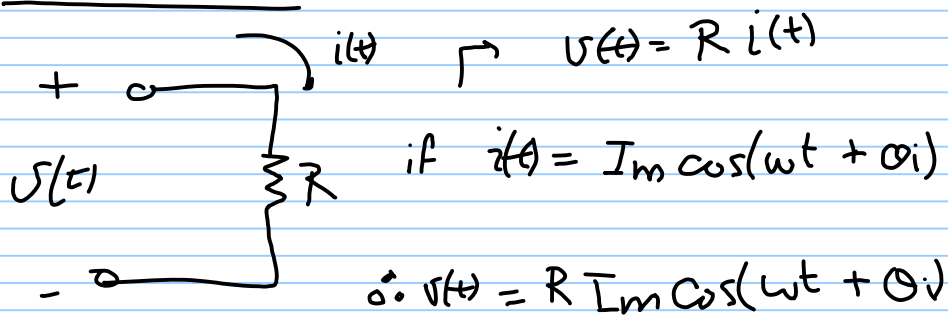 i(t) v(t) = R i(t)
+
v(t) R if i(t) = Im cos(ωt + θi)
- ∴ v(t) = R Im Cos(ωt + θi)